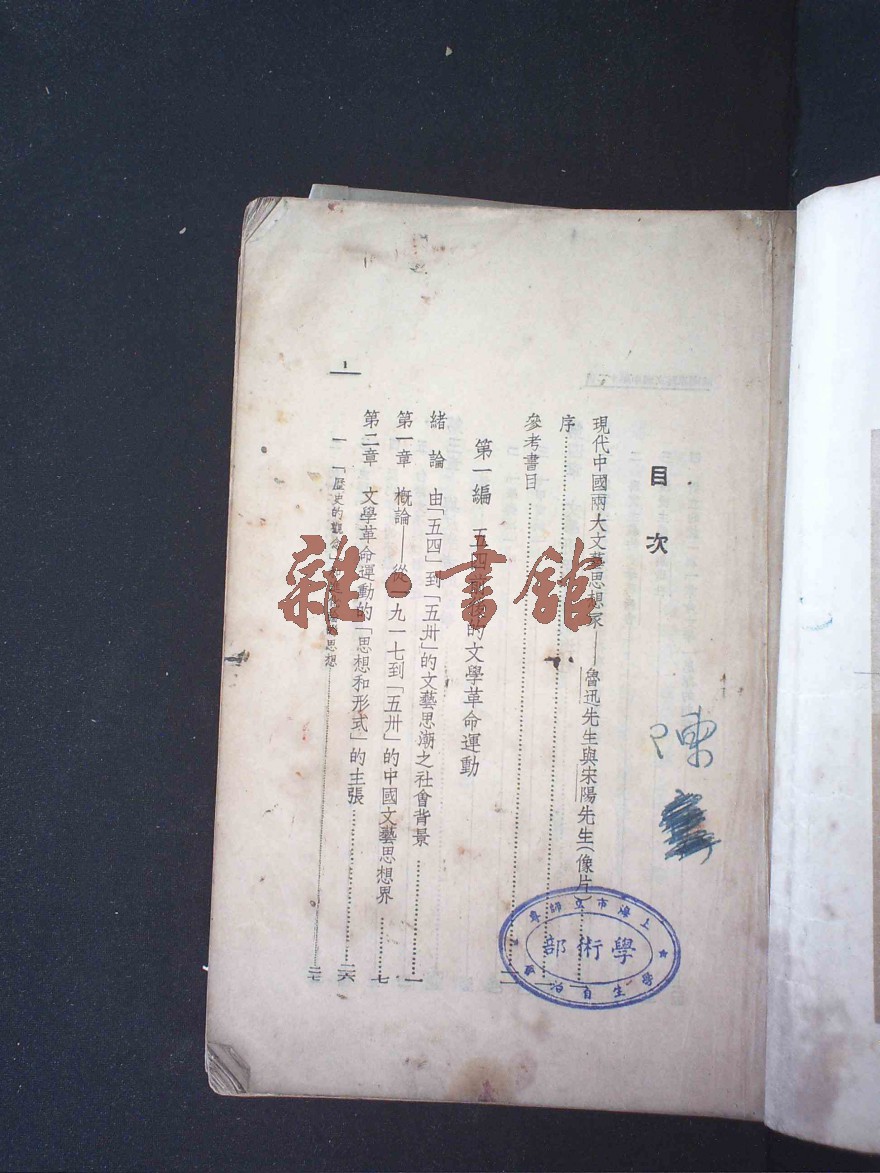 目次
現代中國兩大文藝思想家——魯迅先生與宋陽先生(像片)
序
參考書目
第一編 五四 的文學革命運動
緒論 由「五四」到「五卅」的文藝思潮之社會背景 一
第一章 概論——從一九一七到「五卅」的中國文藝思想界 七
第二章 文學革命運動的「思想和形式」的主張 二六
一 「歷史的觀念 思想 二七
1
陳
上海市立師專
學術部
學生自治會
雜·書館